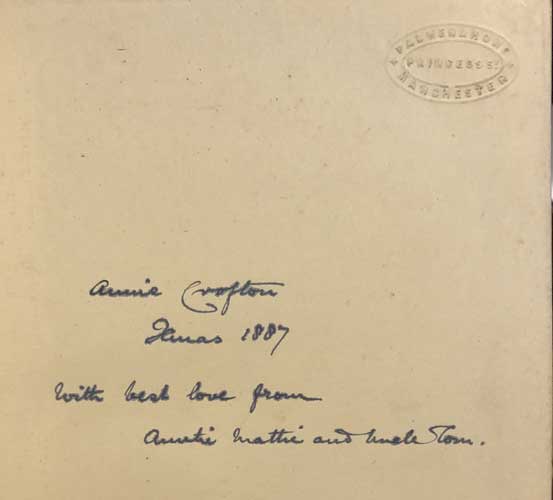 PALMER & HOWE
PRINCESS ST
MANCHESTER
Annie Crofton
Xmas 1887
With best love from
Auntie Mattie and Uncle Tom.